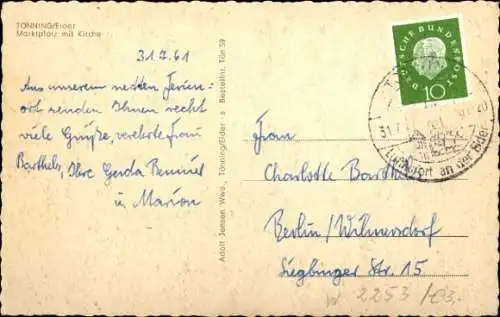 TÖNNING/Eider
Marktplatz mit Kirche
31.7.61
Aus unserem netten Ferien-
ort senden Ihnen recht
viele Grüße, verehrte Frau
Barthels, Ihre Gerda
u. Marion
Adolf Jensen Wwe., Tönning/Eider s Bestellnr. Tön 59
DEUTSCHE BUNDESPOST
10
31.7.
an der Eider
Frau
Charlotte Barthels
Berlin/Wilmersdorf
Sieglinger Str. 15
W 2253 /03.